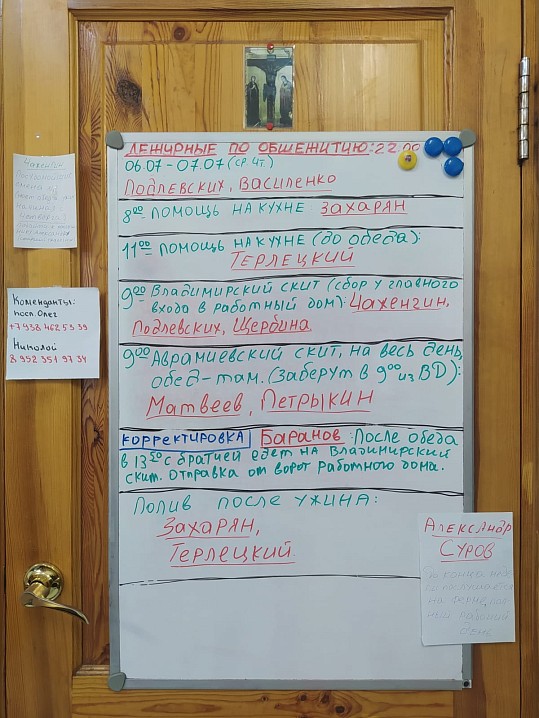 Дежурные по общежитию: 22.00
06.07 – 07.07 (ср. чт.)
Подлевских, Василенко
8⁰⁰ помощь на кухне Захарян
11⁰⁰ помощь на кухне (до обеда):
Терлецкий
9⁰⁰ Владимирский скит (сбор у главного
входа в работный дом): Чахенгин,
Подлевских, Щербина.
9⁰⁰ Аврамиевский скит, на весь день,
обед – там. (Заберут в 9⁰⁰ из ВД):
Матвеев, Петрыкин
корректировка Баранов: После обеда
в 13²⁰ с братией едет на Владимирский
скит. Отправка от ворот работного дома.
Полив после ужина:
Захарян,
Терлецкий.
Чахенгин
Коменданты:
посл. Олег
+7 938 462 53 39
Николой
8 952 351 97 34
Александр
Суров
до конца
на ферме,
рабочий
день